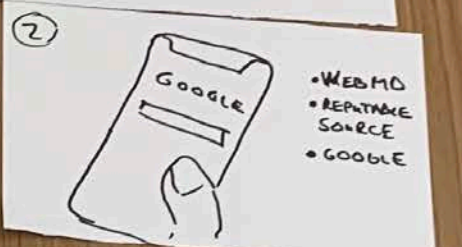 2
GOOGLE
• WEBMD
• REPUTABLE
SOURCE
• GOOGLE